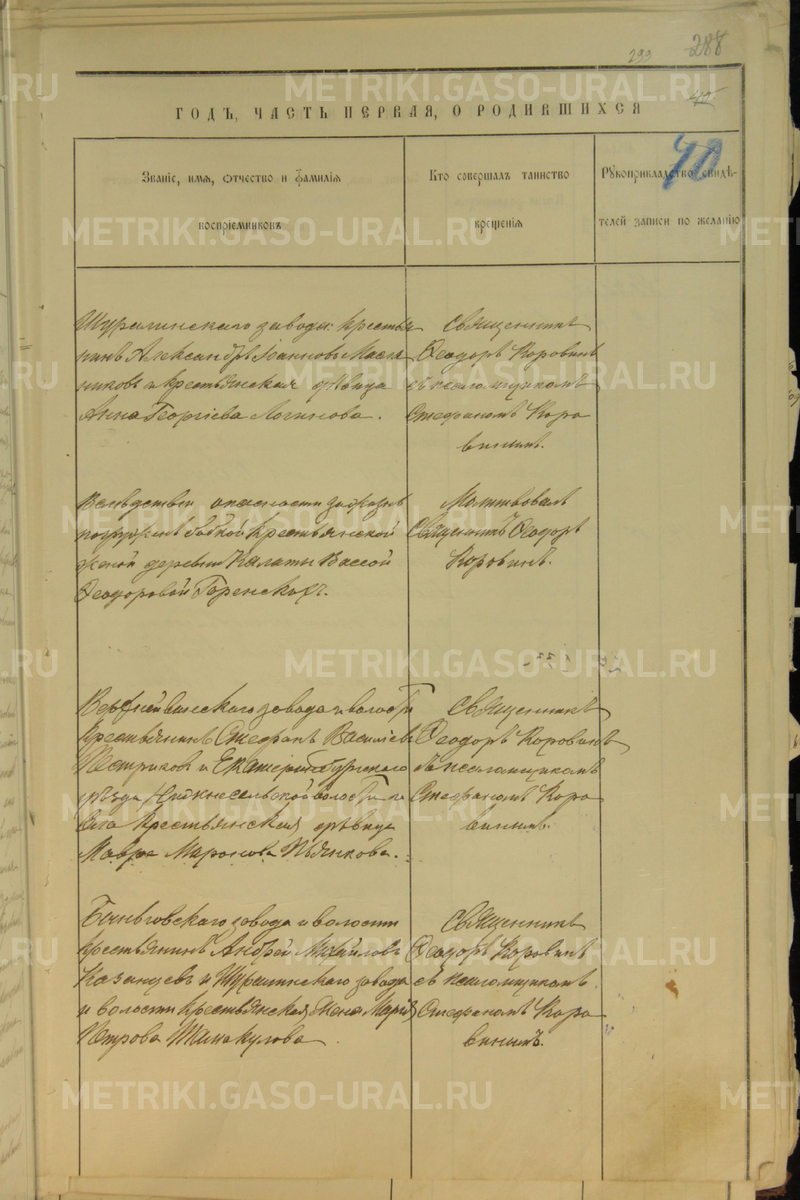 293 288
40
ГОДЪ, ЧАСТЬ ПЕРВАЯ, О РОДИВШИХСЯ
Званіе, имя, отчество и фамилія
воспріемниковъ
Кто совершалъ таинство
крещенія
Рукоприкладство свидѣ-
телей записи по желанію
Шуралинскаго завода: крестья
нинъ Александръ Іоанновъ Масля
никовъ и крестьянская дѣвица
Анна Георгіева Логинова.
Священникъ
Ѳеодоръ Коровинъ
съ псаломщикомъ
Стефаномъ Коро
винымъ.
Вслѣдствіи опасности
погружен бабкой крестьянской
женой деревни Калаты Вассой
Ѳеодоровой Горенскохъ.
Молитвовалъ
Священникъ Ѳеодоръ
Коровинъ.
Верхнейвинскаго завода и волости
крестьянинъ Стефанъ Василіевъ
Пестриковъ и Екатеринбургскаго
уѣзда волости
крестьянская дѣвица
Мавра Маронова Пьянкова.
Священникъ
Ѳеодоръ Коровинъ
съ псаломщикомъ
Стефаномъ Коро
винымъ.
Быньговскаго завода и волости
крестьянинъ Андрей Михайловъ
Казанцевъ и Шуралинскаго завода
и волости крестьянская жена Марія
Петрова Шамакулова
Священникъ
Ѳеодоръ Коровинъ
съ псаломщикомъ
Стефаномъ Коро
винымъ.
METRIKI.GASO-URAL.RU